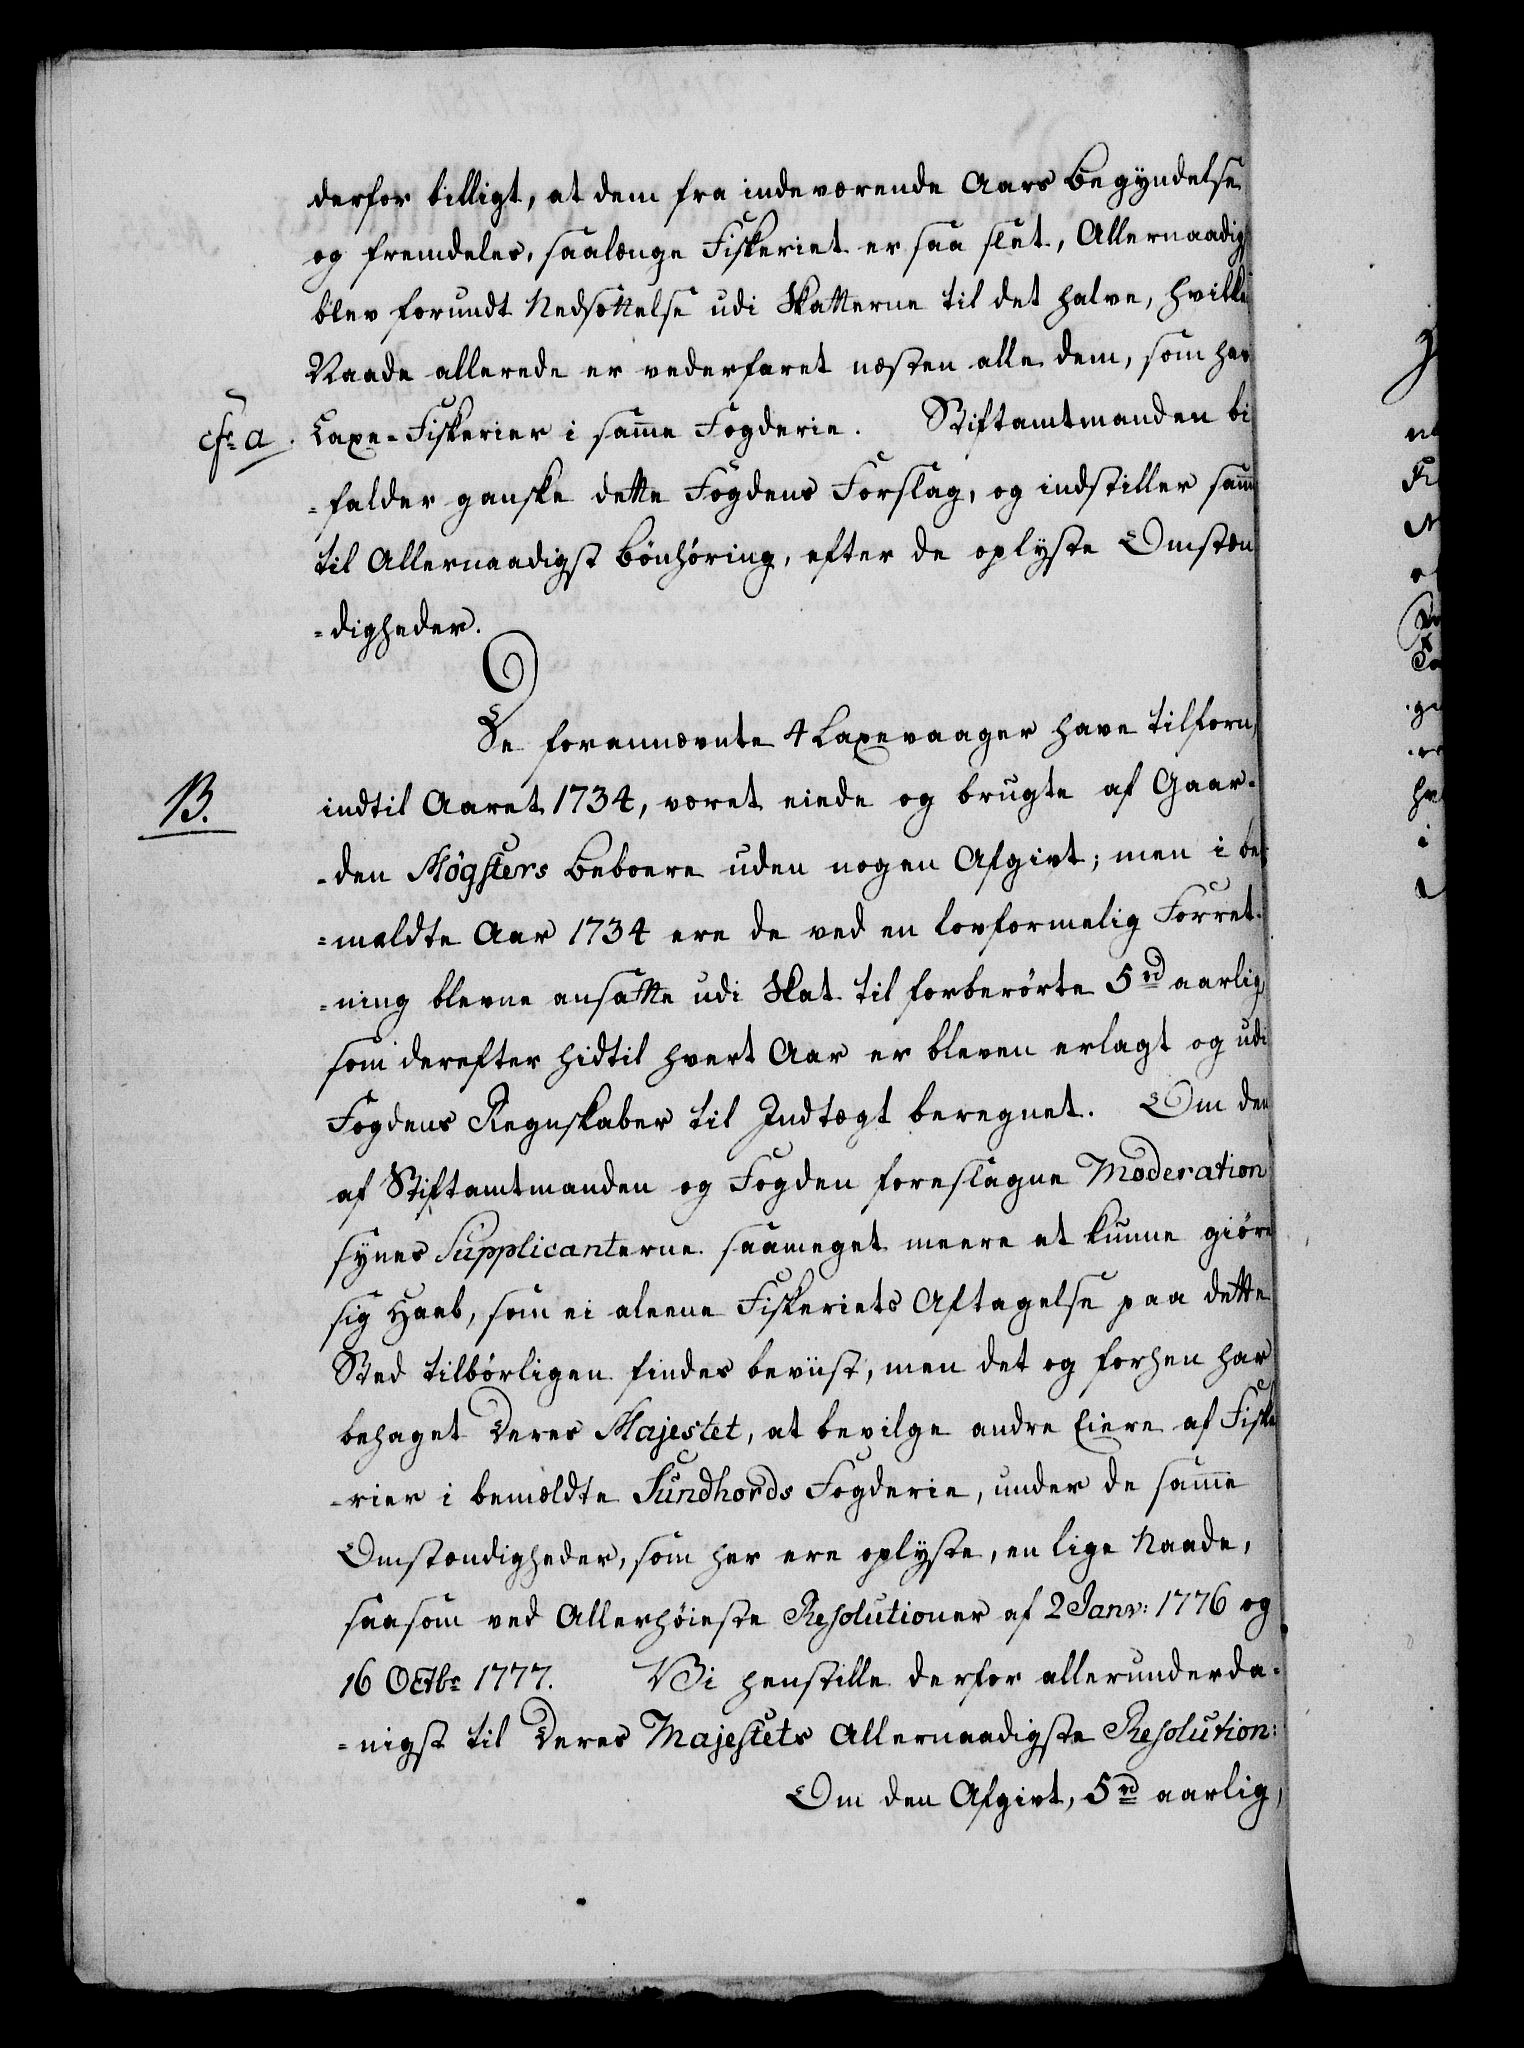 derfor billigt, at dem fra indeværende Aars Begyndelse
og fremdeles, saalænge Fiskeriet er saa slet, Allernaadigst
blev forundt Nedsættelse udi Skatterne til det halve, hvilken
Naade allerede er vederfaret næsten alle dem, som har
cfr a. Laxe-Fiskerier i samme Fogderie. Stiftamtmanden bi
=falder ganske dette Fogdens Forslag, og indstiller samme
til Allernaadigst Bönhöring, efter de oplyste Omstæn
=digheder.
De forannævnte 4 Laxevaager have tilforn,
B. indtil Aaret 1734, været eiede og brugte af Gaar-
=den Møgsters Beboere uden nogen Afgivt; men i be-
=mældte Aar 1734 ere de ved en lovformelig Forret-
=ning blevne ansatte udi Skat til forberørte 5 rd aarlig,
som derefter hidtil hvert Aar er bleven erlagt og udi
Fogdens Regnskaber til Indtægt beregnet. Om den
af Stiftamtmanden og Fogden foreslagne Moderation
synes Supplicanterne saameget meere at kunne giöre
sig Haab, som ei aleene Fiskeriets Aftagelse paa dette
Sted tilbörligen findes beviist, men det og forhen har
behaget Deres Majestet, at bevilge andre Eiere af Fiske
-rier i bemældte Sundhords Fogderie, under de samme
Omstændigheder, som her ere oplyste, en lige Naade,
saasom ved Allerhöieste Resolutioner af 2 Janv: 1776 og
16 Octbr 1777. Vi henstille derfor allerunderda-
=nigst til Deres Majestets Allernaadigste Resolution:
Om den Afgivt, 5 rd aarlig,